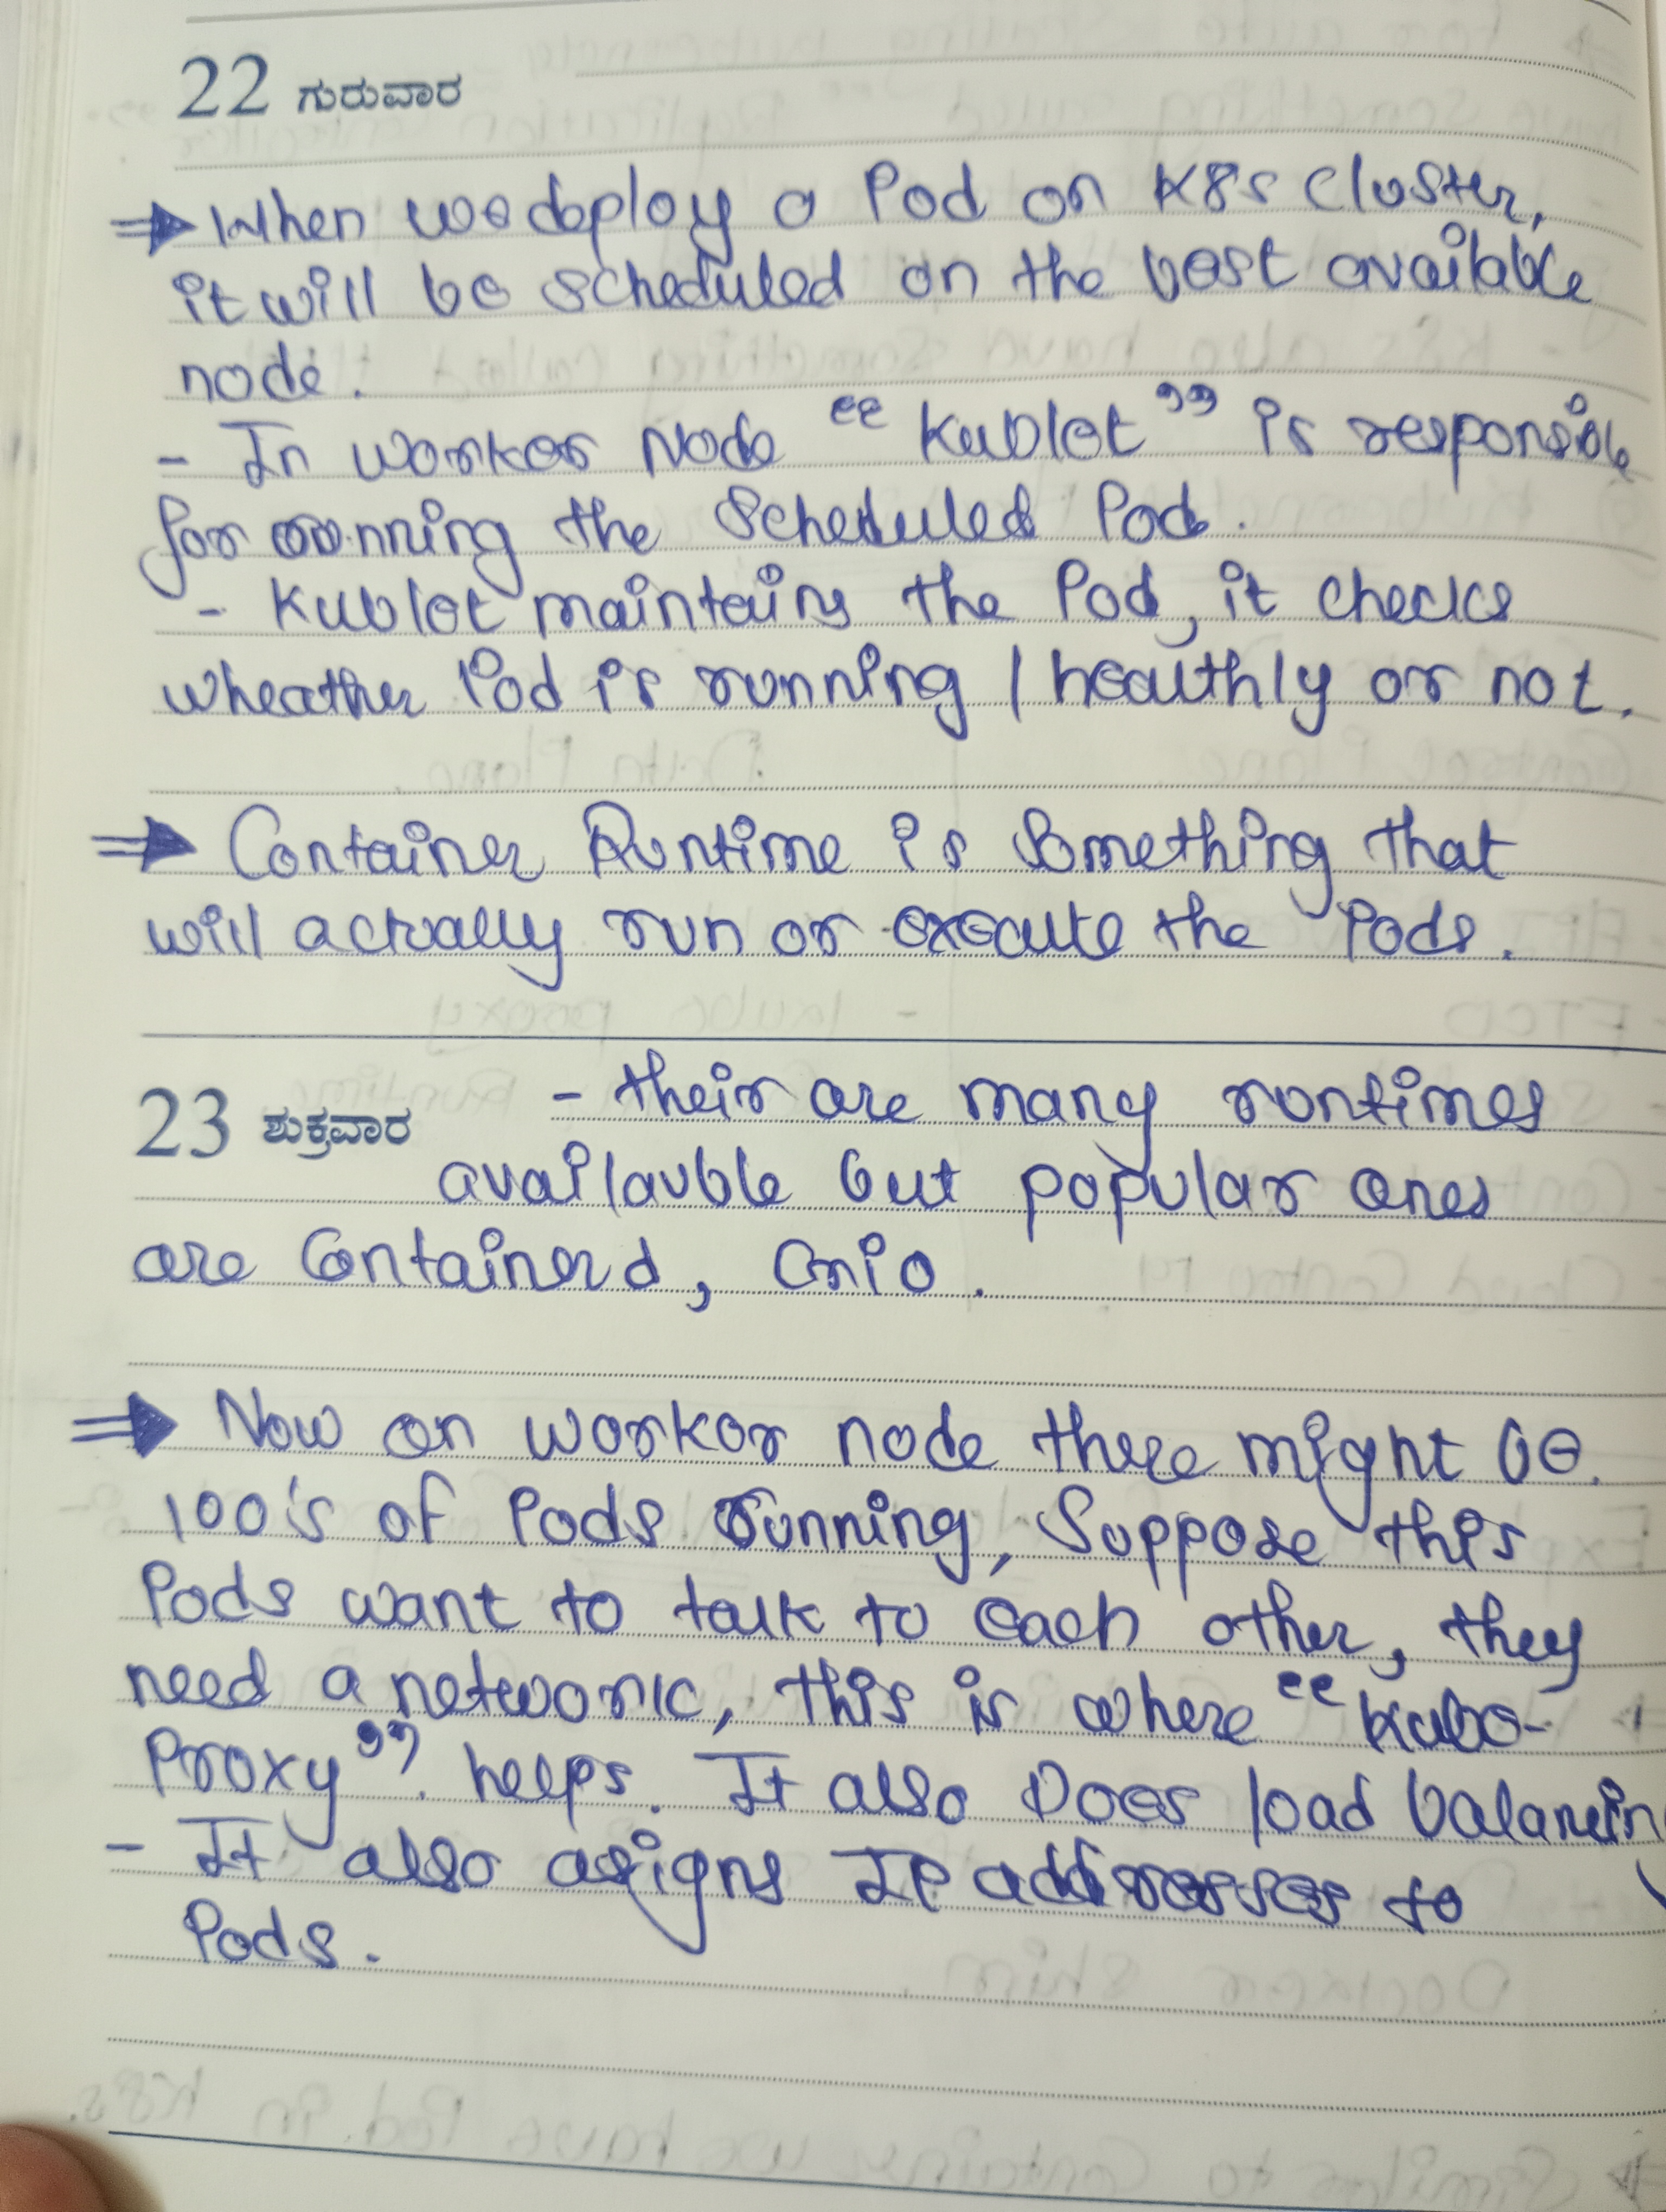 22 ಗುರುವಾರ
⇒ When we deploy a Pod on K8s Cluster,
it will be scheduled on the best available
node.
- In worker Node "Kublet" is responsible
for running the Scheduled Pod.
- Kublet maintains the Pod, it checks
wheather Pod is running / healthly or not.
⇒ Container Runtime is Something that
will actually run or execute the Pods.
23 ಶುಕ್ರವಾರ - their are many runtimes
availauble but popular ones
are Containerd, Crio.
⇒ Now on worker node there might be.
100's of Pods running, Suppose this
Pods want to talk to each other, they
need a network, this is where "Kube-
Proxy". helps. It also Does load balancing
- It also asigns IP addresses to
Pods.